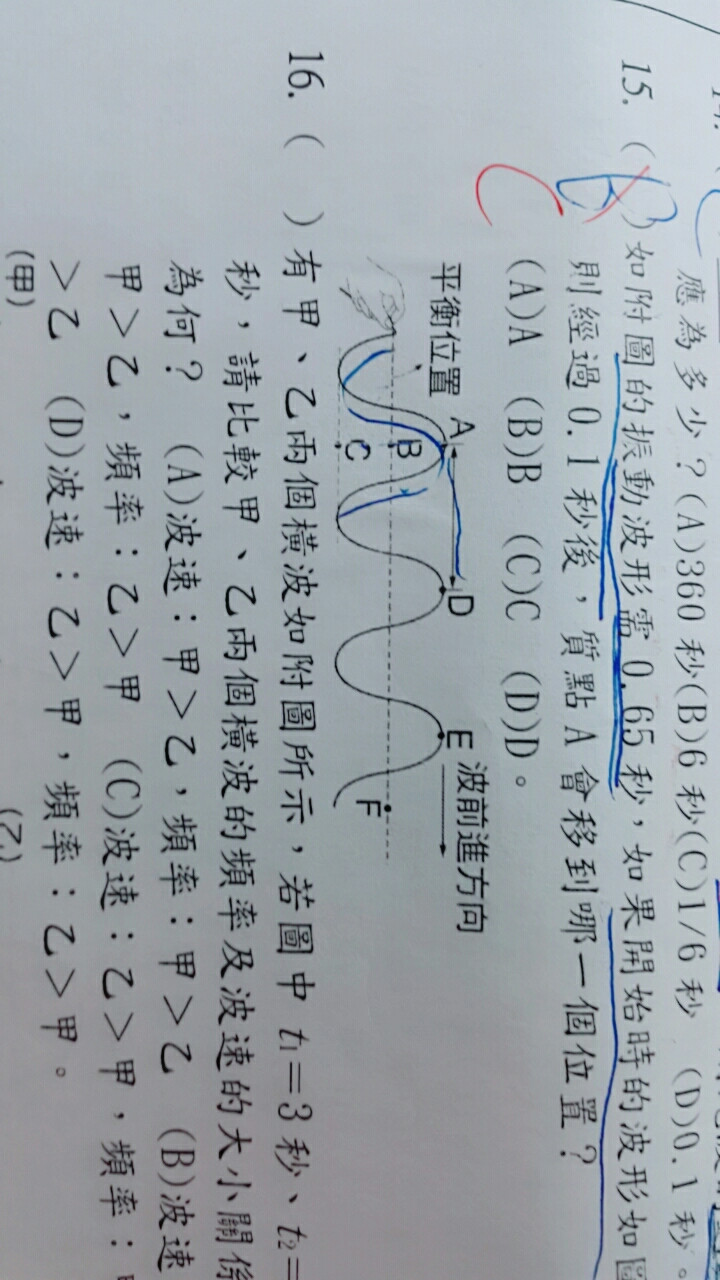 應為多少？(A)360 秒(B)6 秒(C)1/6 秒 (D)0.1 秒。
15. (B)如附圖的振動波形需 0.65 秒，如果開始時的波形如圖
則經過 0.1 秒後，質點 A 會移到哪一個位置？
(A)A (B)B (C)C (D)D。
平衡位置
A
B
C
D
E
F
波前進方向
16. ( ) 有甲、乙兩個橫波如附圖所示，若圖中 t₁＝3 秒、t₂＝
秒，請比較甲、乙兩個橫波的頻率及波速的大小關係
為何？ (A)波速：甲＞乙，頻率：甲＞乙 (B)波速
甲＞乙，頻率：乙＞甲 (C)波速：乙＞甲，頻率：
＞乙 (D)波速：乙＞甲，頻率：乙＞甲。
(甲)
(乙)